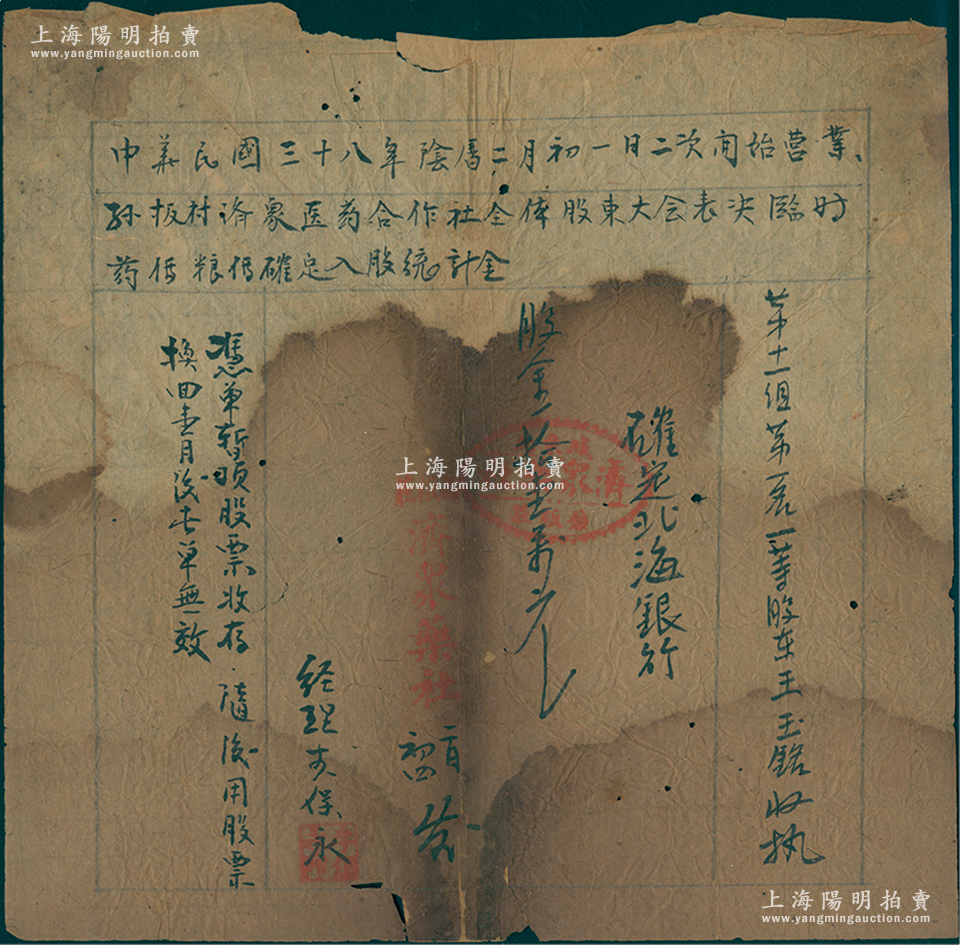 上海陽明拍賣
www.yangmingauction.com
中華民國三十八年陰曆二月初一日二次開始营業、
孙板村济衆医药合作社全体股東大会表决臨时
药価粮価確定入股統計金
第十一组第一名一等股东王玉銘收执
確定北海銀行
股金拾
濟衆
濟衆藥社
二月
初四
发
经理 保永
憑单暫顶股票收存.隨後用股票
換回壹月後此单無效
上海陽明拍賣
www.yangmingauction.com
上海陽明拍賣
www.yangmingauction.com